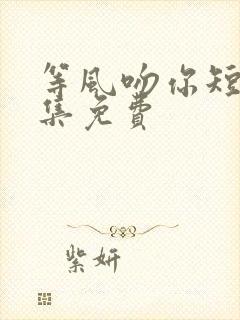 等风吻你短
集免费
紫妍